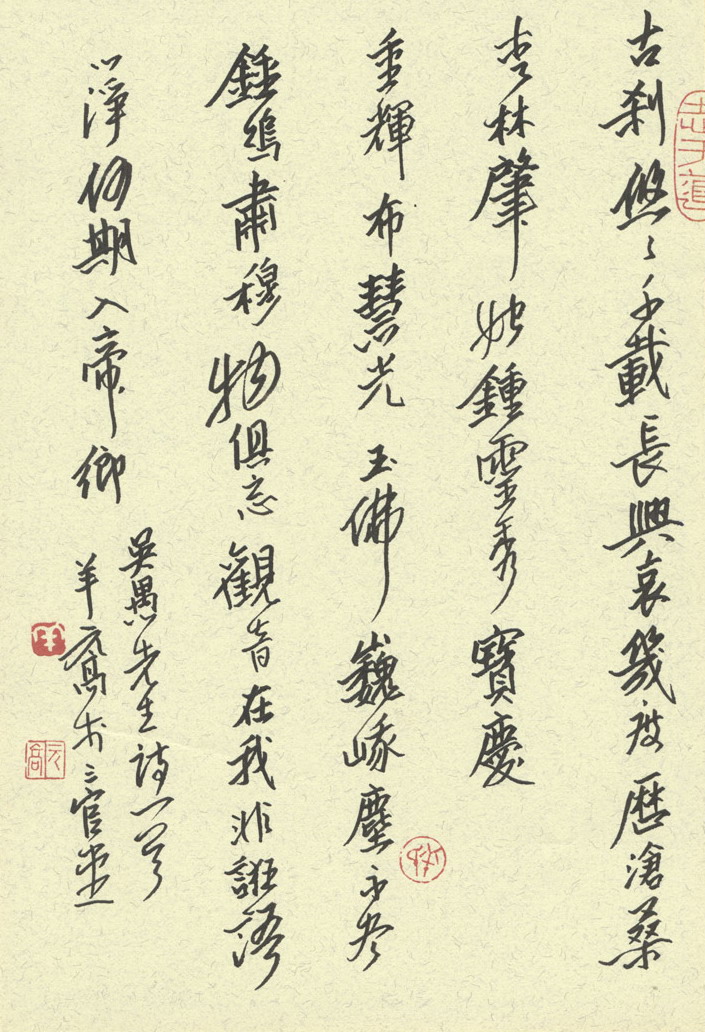 志于道
古刹悠〻千載長興衰幾度歷滄桑
杏林肇始鍾靈秀寶慶
重輝布慧光玉佛巍峨塵
鍾鳴肅穆物俱忘觀音在我非誑語
心淨何期入帝鄉
吳愚先生詩一首
羊元喬於三官堂
羊
元喬